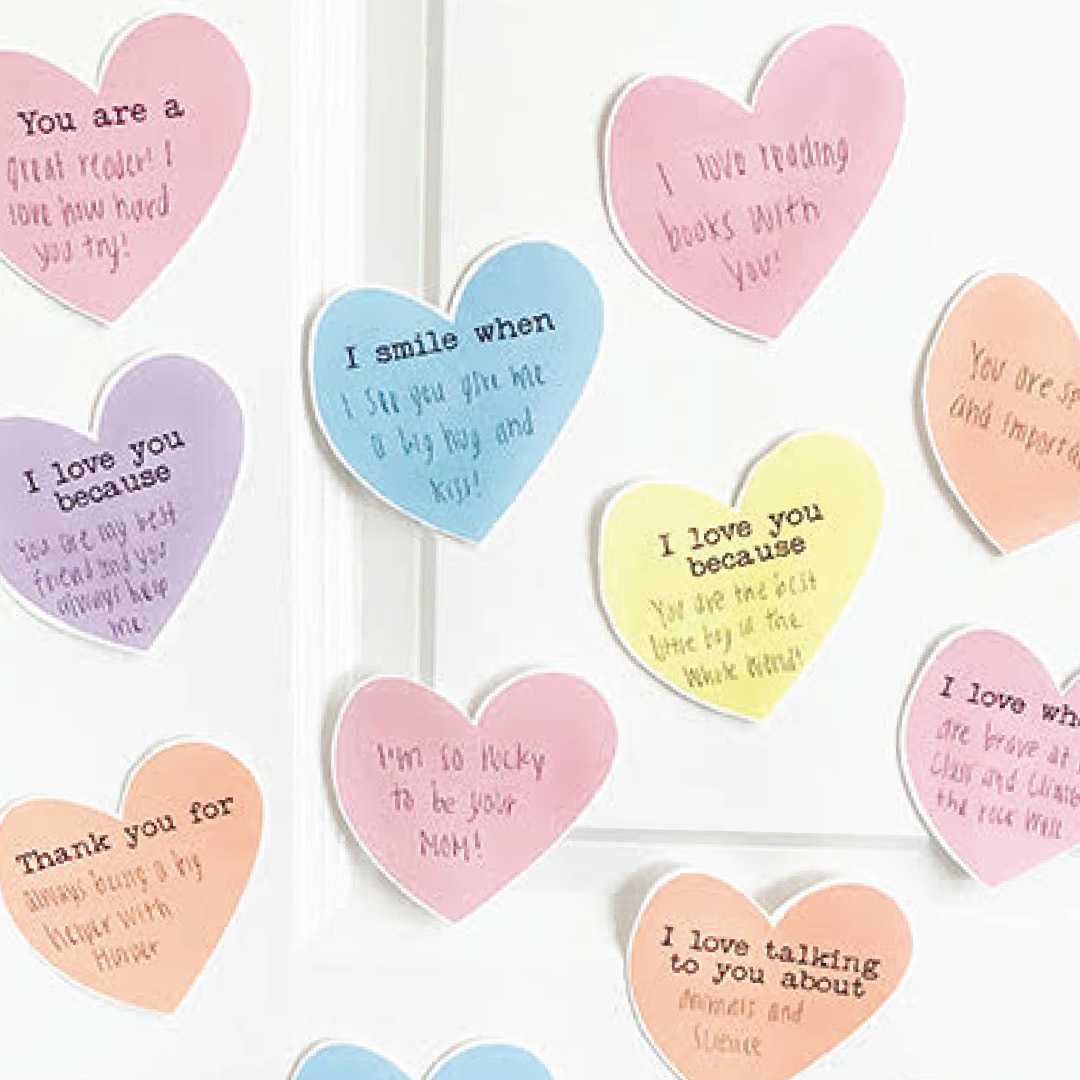 You are a
great reader! I
love how hard
you try!
I love reading
books with
you!
I smile when
I see you give me
a big hug and
kiss!
You are
and
I love you
because
You are my best
friend and you
always help
me.
I love you
because
You are the best
little boy in the
whole world!
I love
are brave at
class and
the rock wall
I'm so lucky
to be your
MOM!
Thank you for
always being a big
helper with
I love talking
to you about
animals and
science